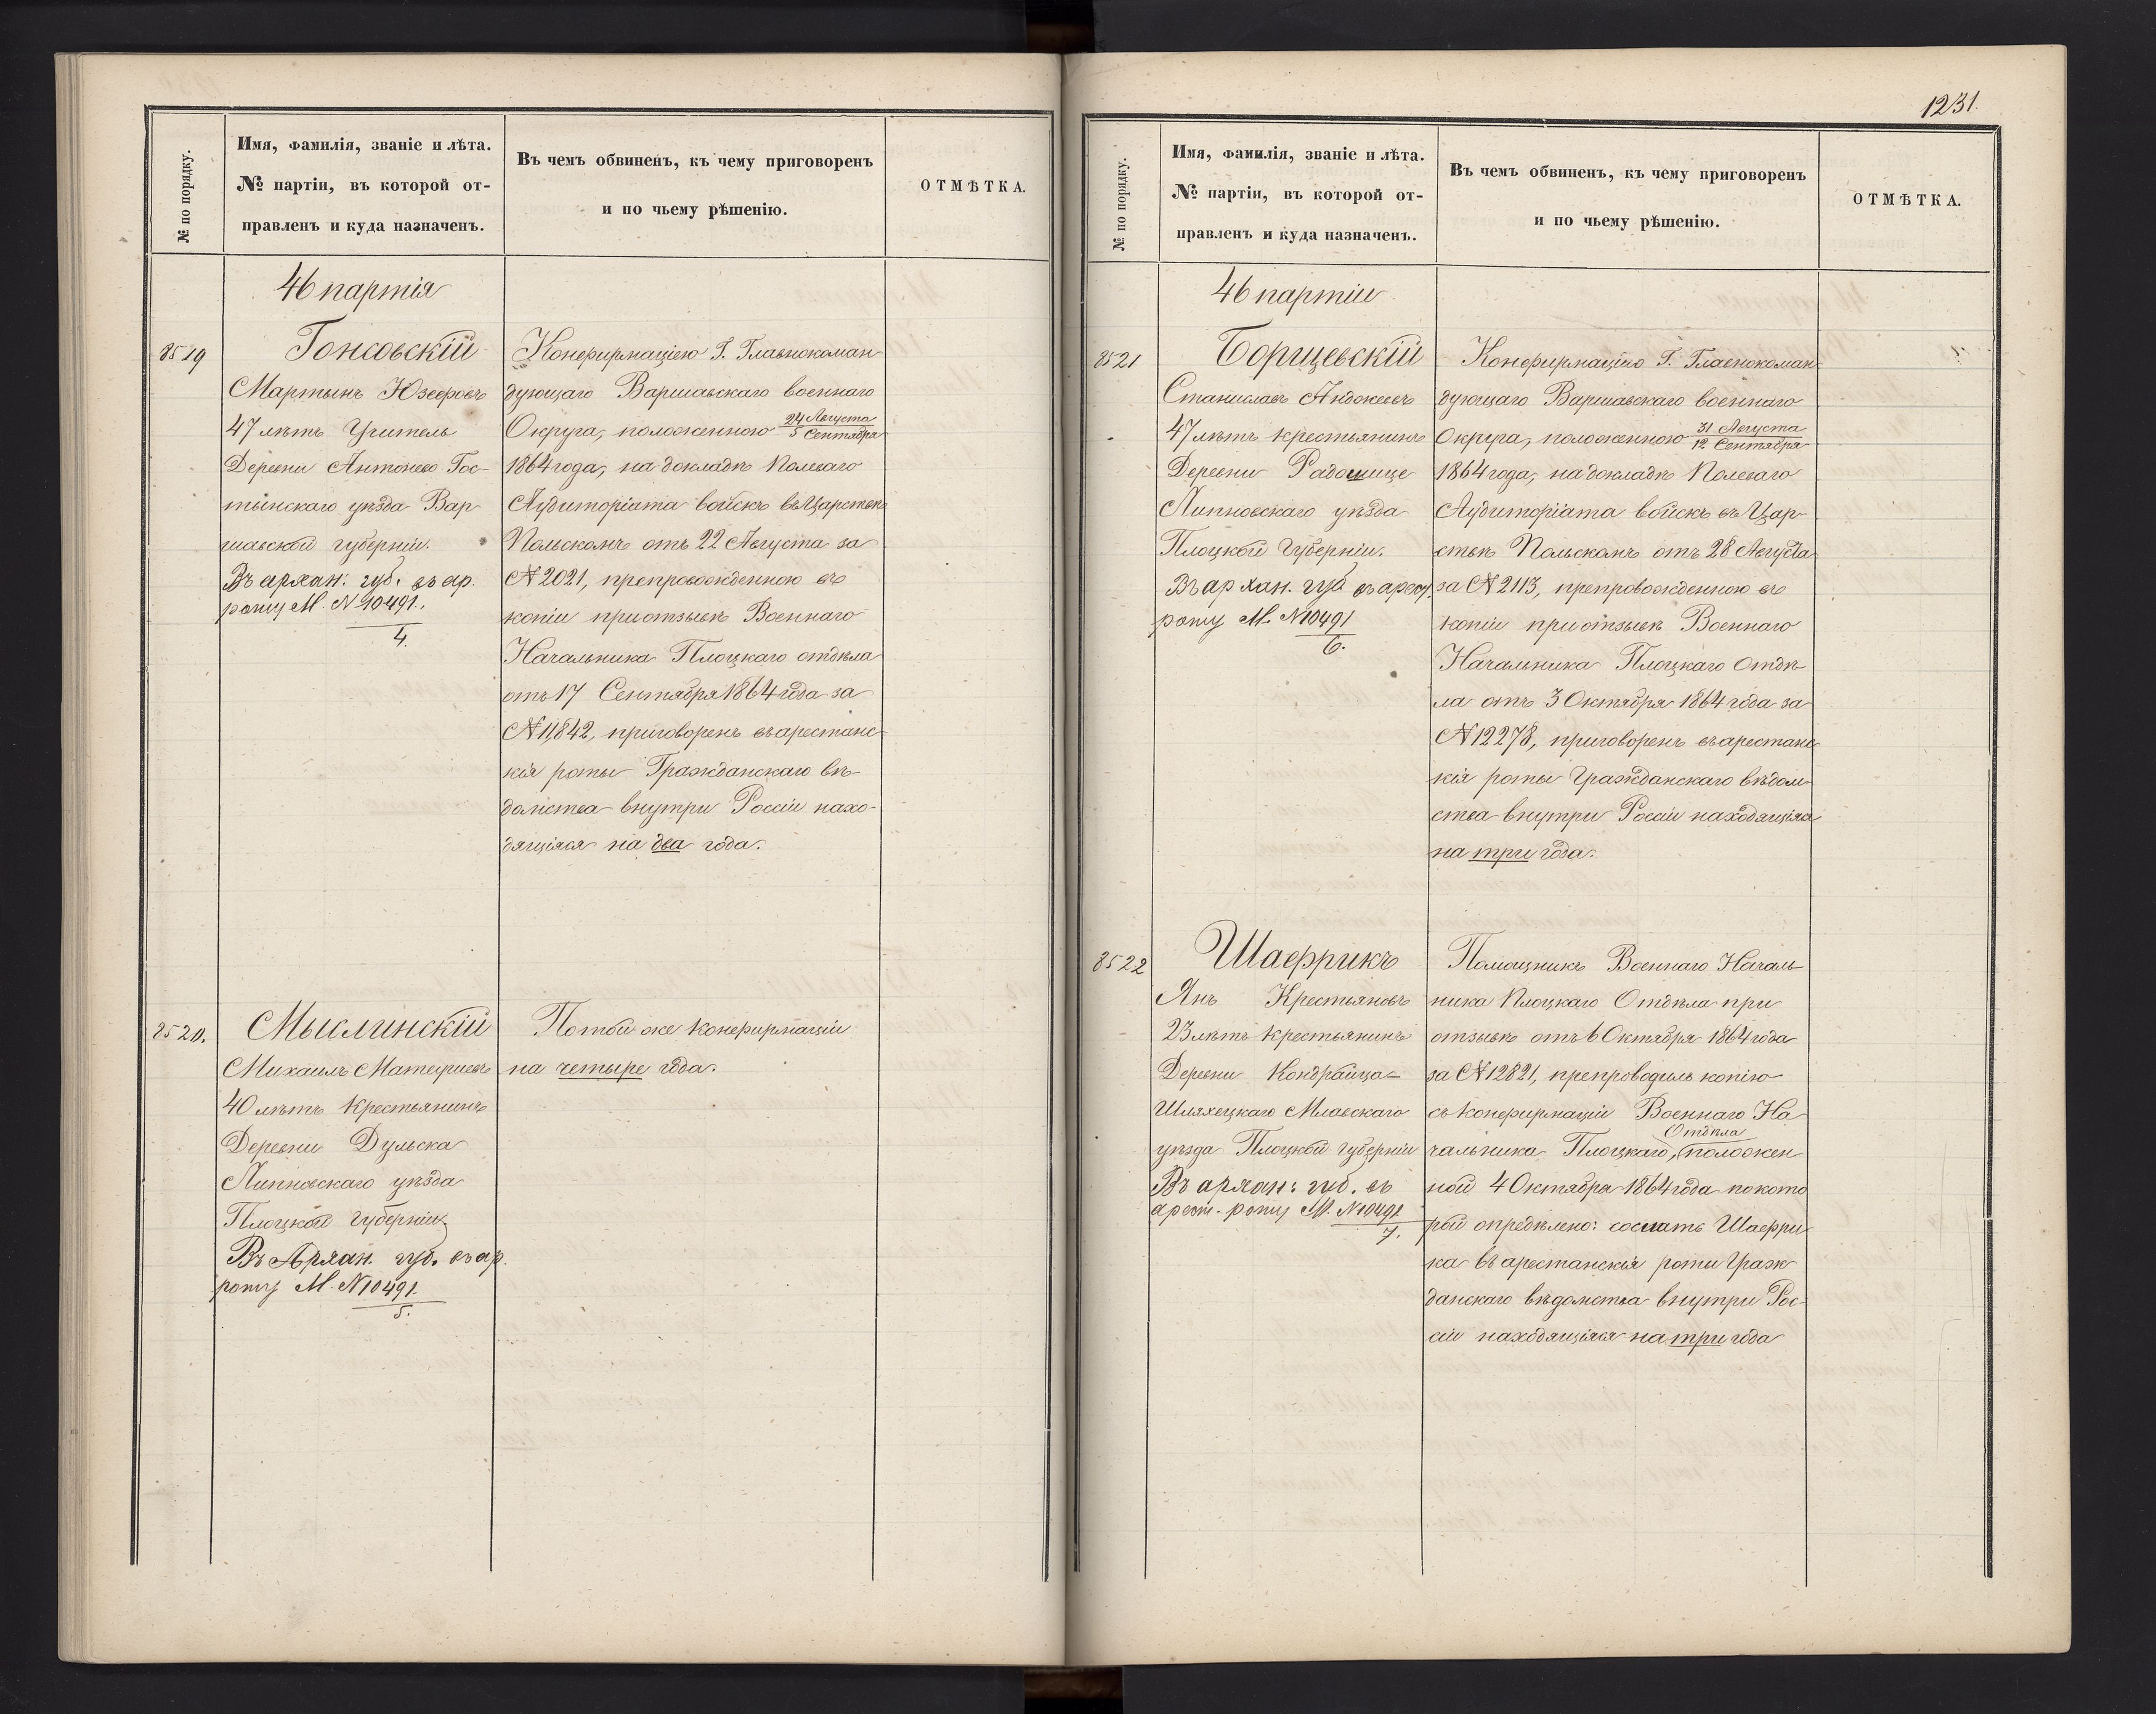 № по порядку.
Имя, фамилія, званіе и лѣта.
№ партіи, въ которой от-
правленъ и куда назначенъ.
Въ чемъ обвиненъ, къ чему приговоренъ
и по чьему рѣшенію.
ОТМѢТКА.
46 партія
8519
Гонсовскій
Мартынъ Юзефовъ
47 лѣтъ Учитель
Деревни Антонево Гос-
тынскаго уѣзда Вар
шавской губерніи.
Въ архан. губ. въ ар.
роту М. N 10491.
4.
Конфирмаціею Г. Главнокоман
дующаго Варшавскаго военнаго
Округа, положенною 24 Августа / 5 Сентября
1864 года, на докладѣ Полеваго
Аудиторіата войскъ въ Царствѣ
Польскомъ отъ 22 Августа за
N 2021, препровожденною въ
копіи при отзывѣ Военнаго
Начальника Плоцкаго отдѣла
отъ 17 Сентября 1864 года за
N 11,842, приговоренъ въ арестанс-
кія роты Гражданскаго вѣ-
домства внутри Россіи нахо-
дящіяся на два года.
8520.
Мыслинскій
Михаилъ Матеушевъ
40 лѣтъ Крестьянинъ
Деревни Дульска
Липновскаго уѣзда
Плоцкой губерніи
Въ Архан. губ. въ ар.
роту М. N 10491.
5.
По той же конфирмаціи
на четыре года.
1231.
№ по порядку.
Имя, фамилія, званіе и лѣта.
№ партіи, въ которой от-
правленъ и куда назначенъ.
Въ чемъ обвиненъ, къ чему приговоренъ
и по чьему рѣшенію.
ОТМѢТКА.
46 партіи
8521
Борщевскій
Станиславъ Андржеевъ
47 лѣтъ крестьянинъ
Деревни
Липновскаго уѣзда
Плоцкой Губерніи.
Въ архан. губ въ арест.
роту М. N 10491
6.
Конфирмаціею Г. Главнокоман
дующаго Варшавскаго военнаго
Округа, положенною 31 Августа / 12 Сентября
1864 года, на докладѣ Полеваго
Аудиторіата войскъ въ Цар-
ствѣ Польскомъ отъ 28 Августа
за N 2113, препровожденною въ
копіи при отзывѣ Военнаго
Начальника Плоцкаго Отдѣ
ла отъ 3 Октября 1864 года за
N 12278, приговоренъ въ арестанс
кія роты Гражданскаго вѣдом
ства внутри Россіи находящіяся
на три года.
8522
Шаефрикъ
Янъ Крестьяновъ
23 лѣтъ крестьянинъ
Деревни Кондраица-
Шляхецкаго Млавскаго
уѣзда Плоцкой губерніи
Въ архан: губ. въ
арест. роту М. N 10491
7.
Помощникъ Военнаго Началь
ника Плоцкаго Отдѣла при
отзывѣ отъ 6 Октября 1864 года
за N 12821, препроводилъ копію
съ конфирмаціи Военнаго На
чальника Плоцкаго Отдѣла, положен
ной 4 Октября 1864 года по кото
рой опредѣлено: сослать Шаефри
ка въ арестанскія роты Граж
данскаго вѣдомства внутри Рос-
сіи находящіяся на три года